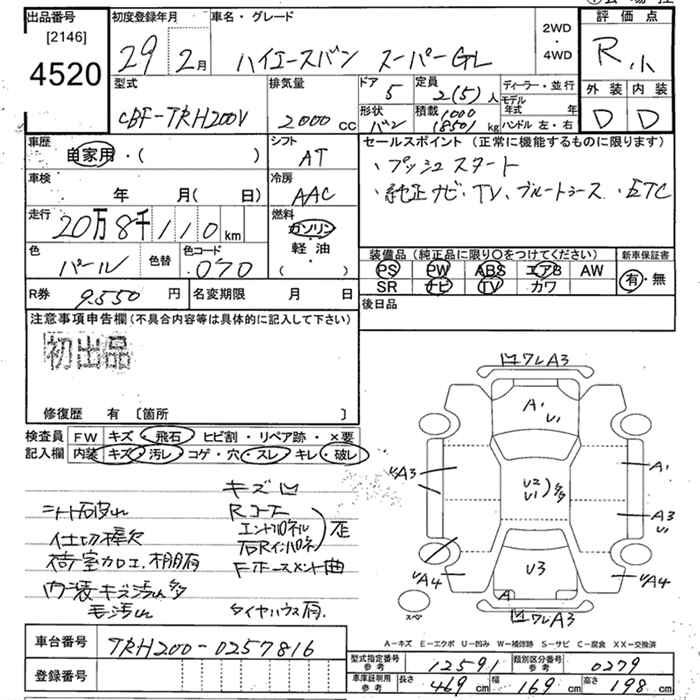 出品番号 初度登録年月 車名・グレード 2WD・4WD 評価点
[2146]
4520 29年 2月 ハイエースバン スーパーGL R小
型式 排気量 ドア 定員 ディーラー・並行 外装 内装
CBF-TRH200V 2000cc 5 2(5)人 モデル年式 年 D D
形状 積載 ハンドル 左・右
バン 1000 850kg
車歴 自家用・( ) シフト AT
セールスポイント (正常に機能するものに限ります)
・プッシュスタート
・純正ナビ、TV、ブルートゥース、ETC
車検 年 月(日) 冷房 AAC
走行 20万8千110km 燃料 ガソリン・軽油 ( )
色 パール 色替 色コード 070
装備品 (純正品に限り○をつけてください) 新車保証書
PS PW ABS エアB AW 有・無
SR ナビ TV カワ
R券 9550円 名変期限 月 日 後日品
注意事項申告欄 (不具合内容等は具体的に記入して下さい)
初出品
修復歴 有 〔箇所 〕
検査員記入欄 FW キズ・飛石・ヒビ割・リペア跡・×要
内装 キズ・汚レ・コゲ・穴・スレ・キレ・破レ
キズ凹
シート破れ Rコーナー
仕切棒欠 エンドパネル
荷室カロエ、棚有 右Rインパネ 歪
内張キズ汚れ多 Fホースメント曲
毛汚れ タイヤハウス有
凹ワレA3
A1
U1
A3
A1
U2
U1 多
A3
U1
U3
A
A4
A4
スペア
凹ワレA3
A-キズ E-エクボ U-凹み W-補修跡 S-サビ C-腐食 XX-交換済
車台番号 TRH200-0257816
型式指定番号 参考 12591 類別区分番号 参考 0279
登録番号
車庫証明用 参考 長さ 469cm 幅 169cm 高さ 198cm